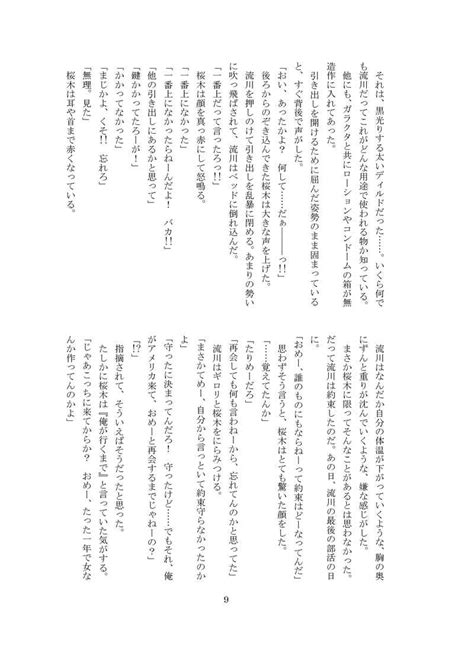 それは、黒光りする太いディルドだった……。いくら何で
も流川だってこれがどんな用途で使われる物か知っている。
他にも、ガラクタと共にローションやコンドームの箱が無
造作に入れてあった。
引き出しを開けるために屈んだ姿勢のまま固まっている
と、すぐ背後で声がした。
「おい、あったかよ？　何して……だぁ――っ!!」
後ろからのぞき込んできた桜木は大きな声を上げた。
流川を押しのけて引き出しを乱暴に閉める。あまりの勢い
に吹っ飛ばされて、流川はベッドに倒れ込んだ。
「一番上だって言ったろっ!!」
桜木は顔を真っ赤にして怒鳴る。
「一番上になかった」
「一番上になかったらねーんだよ！　バカ!!」
「他の引き出しにあるかと思って」
「鍵かかってたろーが！」
「かかってなかった」
「まじかよ、くそ!!　忘れろ」
「無理。見た」
桜木は耳や首まで赤くなっている。
流川はなんだか自分の体温が下がっていくような、胸の奥
にずんと重りが沈んでいくような、嫌な感じがした。
まさか桜木に限ってそんなことがあるとは思わなかった。
だって流川は約束したのだ。あの日、流川の最後の部活の日
に。
「おめー、誰のものにもならねーって約束はどーなってんだ」
思わずそう言うと、桜木はとても驚いた顔をした。
「……覚えてたんか」
「たりめーだろ」
「再会しても何も言わねーから、忘れてんのかと思ってた」
流川はギロリと桜木をにらみつける。
「まさかてめー、自分から言っといて約束守らなかったのか
よ」
「守ったに決まってんだろ！　守ったけど……でもそれ、俺
がアメリカ来て、おめーと再会するまでじゃねーの？」
「!?」
指摘されて、そういえばそうだったと思った。
たしかに桜木は『俺が行くまで』と言っていた気がする。
「じゃあこっちに来てからか？　おめー、たった一年で女な
んか作ってんのかよ」
9